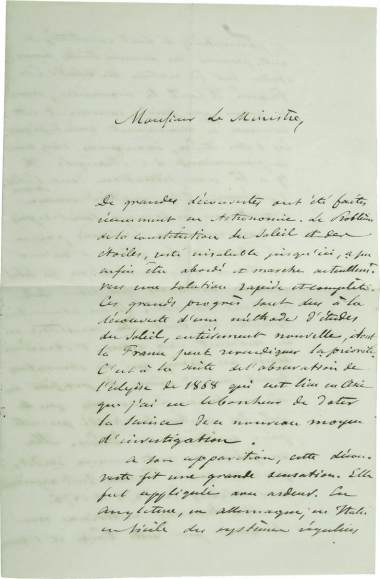 Monsieur Le Ministre,
De grandes découvertes ont été faites
récemment en Astronomie. Le Problème
de la constitution du Soleil et des
étoiles, resté insoluble jusqu'ici, a pu
enfin être abordé et marche actuellement
vers une solution rapide et complète.
Ces grands progrès sont dus à la
découverte d'une méthode d'études
du Soleil, entièrement nouvelle, dont
la France peut revendiquer la priorité.
C'est à la suite de l'observation de
l'éclipse de 1868 qui eut lieu en Asie
que j'ai eu le bonheur de doter
la Science de ce nouveau moyen
d'investigation.
A son apparition, cette décou-
verte fit une grande sensation. Elle
fut appliquée avec ardeur. En
Angleterre, en Allemagne, en Italie
en Sicile des systèmes réguliers